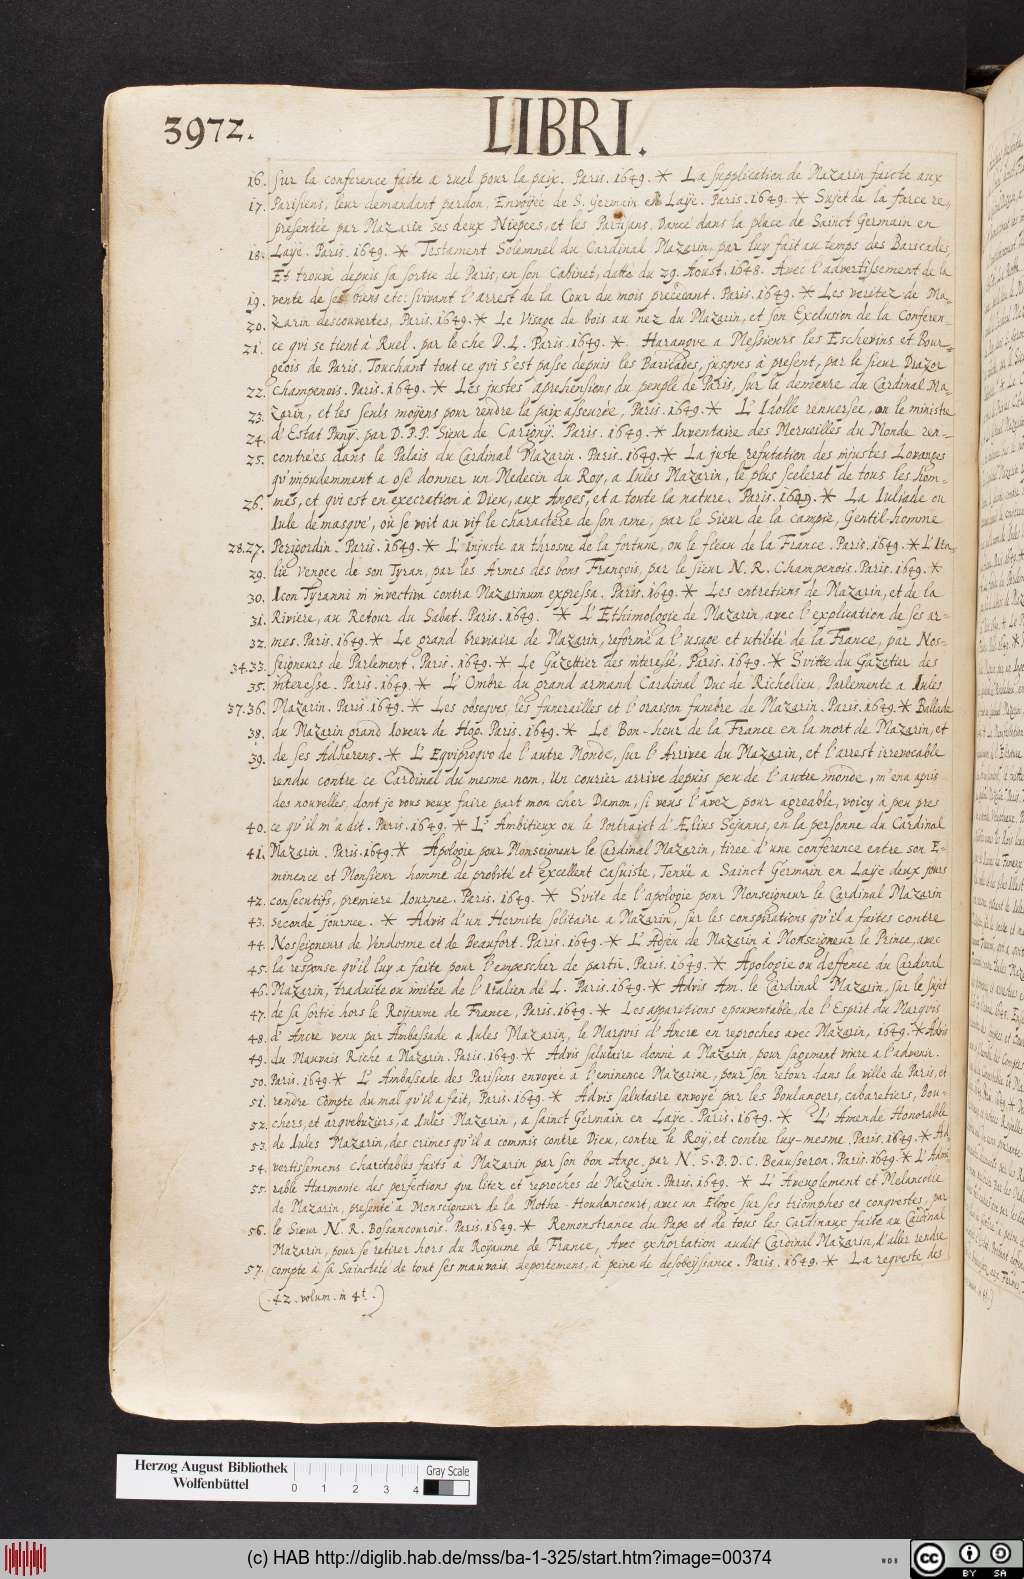 3972.
LIBRI.
16. sur la conference faite a ruel pour la paix. Paris. 1649. * La supplication de Mazarin faicte aux
17. Parisiens, leur demandant pardon, Envoyée de S. Germain en Laye. Paris. 1649. * Sujet de la farce re,
presentée par Mazarin ses deux Niepces, et les Partisans, Dancé dans la place de Sainct Germain en
18. Laye. Paris. 1649. * Testament Solemnel du Cardinal Mazarin, par luy fait au temps des Baricades,
Et trouvé depuis sa sortie de Paris, en son Cabinet, datte du 29. Aoust, 1648. Avec l'advertissement de la
19. vente de ses biens etc: suivant l'arrest de la Cour du mois precedant. Paris. 1649. * Les veritez de Ma,
20. Zarin descouvertes, Paris. 1649. * Le Visage de bois au nez du Mazarin, et son Exclusion de la Conferen-
21. ce qui se tient à Ruel. par le che D. L. Paris. 1649. * Harangve a Messieurs les Eschevins et Bour-
geois de Paris. Touchant tout ce qvi s'est passe depuis les Baricades, jusqves à present, par le sieur Drazor
22. Champenois. Paris. 1649. * Les justes aprehensions du peuple de Paris, sur la demeure du Cardinal Ma-
23. Zarin, et les seuls moyens pour rendre la paix asseurée, Paris. 1649. * L'Idolle renversee, ou le ministre
24. d'Estat Puny. par D. P. P. Sieur de Carigny. Paris. 1649. * Inventaire des Merveilles du Monde ren-
25. contrées dans le Palais du Cardinal Mazarin. Paris. 1649. * La juste refutation des injustes Lovanges
qv'impudemment a osé donner un Medecin du Roy, a Iules Mazarin, le plus scelerat de tous les hom-
26. mes, et qvi est en execration à Dieu, aux Anges, et a toute la nature. Paris. 1649. * La Iuliade ou
Iule demasqvé, où se voit au vif le charactère de son ame, par le Sieur de la campie, Gentil-homme
28.27. Perigordin. Paris. 1649. * L'Injuste au throsne de la fortune, ou le fleau de la France. Paris. 1649. * L'Ita,
29. lie vengee de son Tyran, par les Armes des bons François, par le sieur N. R. Champenois. Paris. 1649. *
30. Icon Tyranni in invectiva contra Mazarinum expressa. Paris. 1649. * Les entretiens de Mazarin, et de la
31. Riviere, au Retour du Sabat. Paris. 1649. * L'Ethimologie de Mazarin, avec l'explication de ses ar-
32. mes. Paris. 1649. * Le grand breviaire de Mazarin, reformé a l'usage et utilité de la France, par Nos-
34.33. seigneurs de Parlement. Paris. 1649. * Le Gazettier des interessé, Paris. 1649. * Svitte du Gazetier des
35. interesse. Paris. 1649. * L'Ombre du grand armand Cardinal Duc de Richelieu, Parlemente a Iules
37.36. Mazarin. Paris. 1649. * Les obseqves, les funerailles et l'oraison funebre de Mazarin. Paris. 1649. * Ballade
38. du Mazarin grand Ioueur de Hoc. Paris. 1649. * Le Bon-heur de la France en la mort de Mazarin, et
39. de ses Adherens. * L'Eqviproqvo de l'autre Monde, sur l'Arrivee du Mazarin, et l'arrest irrevocable
rendu contre ce Cardinal du mesme nom, Un courier arrive depuis peu de l'autre monde, m'ena apris
des nouvelles, dont je vous veux faire part mon cher Damon, si vous l'avez pour agreable, voicy à peu pres
40. ce qv'il m'a dit. Paris. 1649. * L'Ambitieux ou le Portraict d'Ælius Sejanus, en la personne du Cardinal
41. Mazarin. Paris. 1649. * Apologie pour Monseigneur le Cardinal Mazarin, tiree d'une conference entre son E-
minence et Monsieur homme de probité et excellent casuiste, Tenüe a Sainct Germain en Laye deux jours
42. consecutifs, premiere Iournee. Paris. 1649. * Svite de l'apologie pour Monseigneur le Cardinal Mazarin
43. seconde journee. * Advis d'un Hermite solitaire a Mazarin, sur les conspirations qv'il a faites contre
44. Nosseigneurs de Vendosme et de Beaufort. Paris. 1649. * L'Adjeu de Mazarin à Monseigneur le Prince, avec
45. la response qv'il luy a faite pour l'empescher de partir. Paris. 1649. * Apologie ou deffence du Cardinal
46. Mazarin, traduite ou imitée de l'Italien de L. Paris. 1649. * Advis Am. le Cardinal Mazarin, sur le sujet
47. de sa sortie hors le Royaume de France, Paris. 1649. * Les apparitions epouventable, de l'Esprit du Marqvis
48. d'Ancre venu par Ambassade a Iules Mazarin, le Marqvis d'Ancre en reproches avec Mazarin, 1649. * Advis
49. du Mauvais Riche a Mazarin. Paris. 1649. * Advis salutaire donne a Mazarin, pour sagement vivre a l'advenir.
50. Paris. 1649. * L'Ambassade des Parisiens envoyée a l'eminence Mazarine, pour son retour dans la ville de Paris, et
51. rendre compte du mal qv'il a fait, Paris. 1649. * Advis salutaire envoyé par les Boulangers, cabaretiers, Bou-
52. chers, et arqvebuziers, a Iules Mazarin, a sainct Germain en Laye. Paris. 1649. * L'Amende Honorable
53. de Iules Mazarin, des crimes qv'il a commis contre Dieu, contre le Roy, et contre luy-mesme. Paris. 1649. * Ad,
54. vertissemens charitables faits à Mazarin par son bon Ange, par N. S. B. D. C. Beausseron. Paris. 1649. * L'Admi
55. rable Harmonie des perfections qva litez et reproches de Mazarin. Paris. 1649. * L'Aveuglement et Melancolie
de Mazarin, presenté a Monseigneur de la Mothe-Houdancourt, avec un Eloge sur ses triomphes et conqvestes, par
56. le Sieur N. R. Bossancourois. Paris. 1649. * Remonstrance du Pape et de tous les Cardinaux faite au Cardinal
Mazarin, pour se retirer hors du Royaume de France, Avec exhortation audit Cardinal Mazarin, d'aller rendre
57. compte à sa Sainctete de tout ses mauvais deportemens, à peine de desobeyssance. Paris. 1649. * La reqveste des
(. 42. volum. in 4t. .)
Herzog August Bibliothek
Wolfenbüttel
0 1 2 3 4
Gray Scale
(c) HAB http://diglib.hab.de/mss/ba-1-325/start.htm?image=00374
WDB
cc BY SA